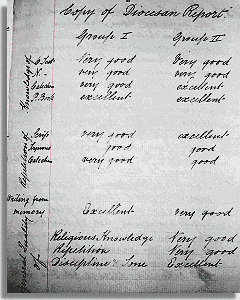 Copy of Diocesan Report.
Group I Group II
Knowledge of
O. Test Very good Very good
N. " very good very good
Catechism very good excellent
P. Book excellent excellent
Repetition of
Scrip. very good excellent
Hymns good good
Catechism very good good
Writing from
memory Excellent very good
Religious Knowledge Very good
Repetition Very good
Discipline & Tone Excellent